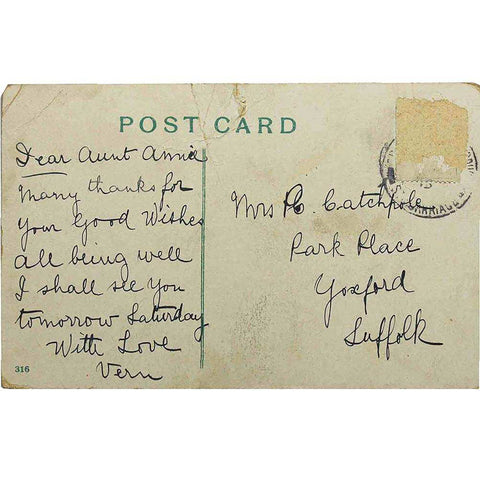 POST CARD
Dear Aunt Annie
Many thanks for
your Good Wishes
all being well
I shall see you
tomorrow Saturday
With Love
Vern
316
Mrs C Catchpole
Park Place
Yoxford
Suffolk